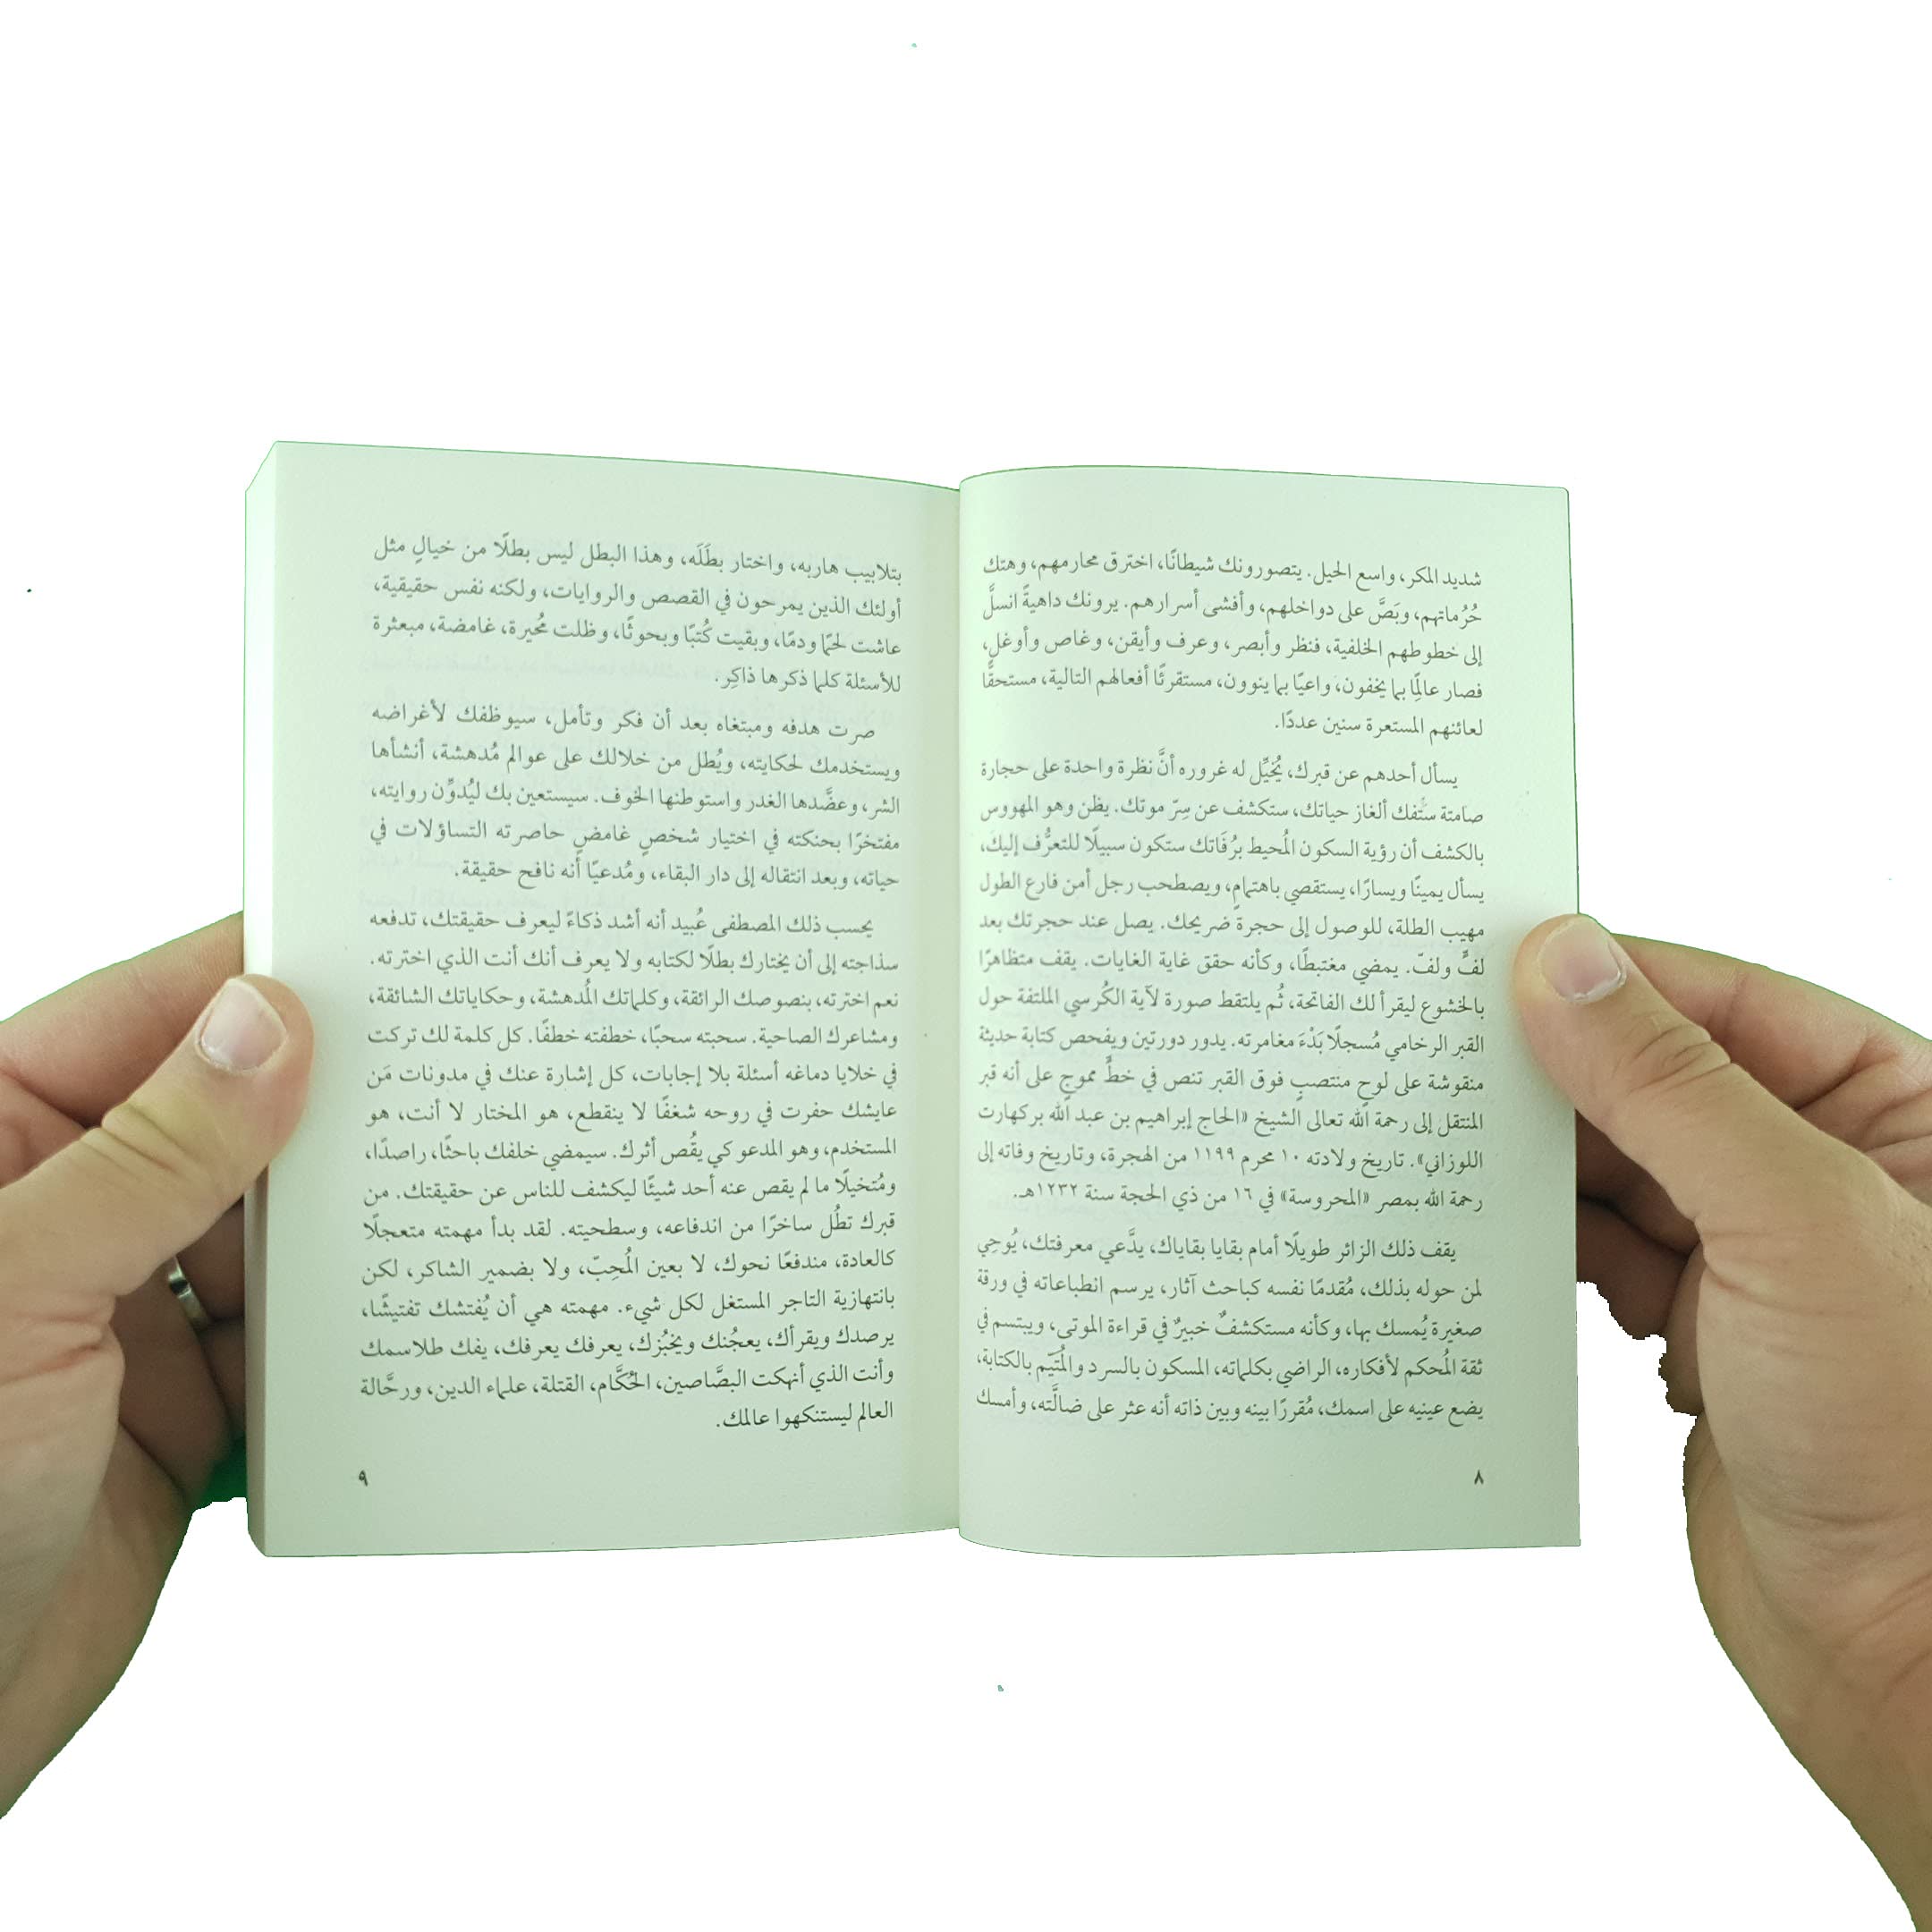 شديد المكر، واسع الحيل. يتصورونك شيطانًا، اخترق محارمهم، وهتك
حُرُماتهم، وبَصَّ على دواخلهم، وأفشى أسرارهم. يرونك داهيةً انسلَّ
إلى خطوطهم الخلفية، فنظر وأبصر، وعرف وأيقن، وغاص وأوغل،
فصار عالِمًا بما يخفون، واعيًا بما ينوون، مستقرئًا أفعالهم التالية، مستحقًّا
لعائنهم المستعرة سنين عددًا.
يسأل أحدهم عن قبرك، يُخيِّل له غروره أنَّ نظرة واحدة على حجارة
صامتة ستفك ألغاز حياتك، ستكشف عن سِرّ موتك. يظن وهو المهووس
بالكشف أن رؤية السكون المُحيط برُفَاتك ستكون سبيلًا للتعرُّف إليك،
يسأل يمينًا ويسارًا، يستقصي باهتمامٍ، ويصطحب رجل أمن فارع الطول
مهيب الطلة، للوصول إلى حجرة ضريحك. يصل عند حجرتك بعد
لفٍّ ولفّ. يمضي مغتبطًا، وكأنه حقق غاية الغايات. يقف متظاهرًا
بالخشوع ليقرأ لك الفاتحة، ثُم يلتقط صورة لآية الكُرسي الملتفة حول
القبر الرخامي مُسجلًا بَدْءَ مغامرته. يدور دورتين ويفحص كتابة حديثة
منقوشة على لوحٍ منتصبٍ فوق القبر تنص في خطٍّ مموجٍ على أنه قبر
المنتقل إلى رحمة الله تعالى الشيخ «الحاج إبراهيم بن عبد الله بركهارت
اللوزاني». تاريخ ولادته ١٠ محرم ١١٩٩ من الهجرة، وتاريخ وفاته إلى
رحمة الله بمصر «المحروسة» في ١٦ من ذي الحجة سنة ١٢٣٢هـ.
يقف ذلك الزائر طويلًا أمام بقايا بقاياك، يدَّعي معرفتك، يُوحِي
لمن حوله بذلك، مُقدمًا نفسه كباحث آثار، يرسم انطباعاته في ورقة
صغيرة يُمسك بها، وكأنه مستكشفٌ خبيرٌ في قراءة الموتى، ويبتسم في
ثقة المُحكم لأفكاره، الراضي بكلماته، المسكون بالسرد والمُتَيّم بالكتابة،
يضع عينيه على اسمك، مُقررًا بينه وبين ذاته أنه عثر على ضالَّته، وأمسك
٨
بتلابيب هاربه، واختار بطَلَه، وهذا البطل ليس بطلًا من خيالٍ مثل
أولئك الذين يمرحون في القصص والروايات، ولكنه نفس حقيقية،
عاشت لحمًا ودمًا، وبقيت كُتبًا وبحوثًا، وظلت مُحيرة، غامضة، مبعثرة
للأسئلة كلما ذكرها ذاكِر.
صرت هدفه ومبتغاه بعد أن فكر وتأمل، سيوظفك لأغراضه
ويستخدمك لحكايته، ويُطل من خلالك على عوالم مُدهشة، أنشأها
الشر، وعضَّدها الغدر واستوطنها الخوف. سيستعين بك ليُدوِّن روايته،
مفتخرًا بحنكته في اختيار شخصٍ غامضٍ حاصرته التساؤلات في
حياته، وبعد انتقاله إلى دار البقاء، ومُدعيًا أنه نافح حقيقة.
يحسب ذلك المصطفى عُبيد أنه أشد ذكاءً ليعرف حقيقتك، تدفعه
سذاجته إلى أن يختارك بطلًا لكتابه ولا يعرف أنك أنت الذي اخترته.
نعم اخترته، بنصوصك الرائقة، وكلماتك المُدهشة، وحكاياتك الشائقة،
ومشاعرك الصاحية. سحبته سحبًا، خطفته خطفًا. كل كلمة لك تركت
في خلايا دماغه أسئلة بلا إجابات، كل إشارة عنك في مدونات مَن
عايشك حفرت في روحه شغفًا لا ينقطع، هو المختار لا أنت، هو
المستخدم، وهو المدعو كي يقُص أثرك. سيمضي خلفك باحثًا، راصدًا،
ومُتخيلًا ما لم يقص عنه أحد شيئًا ليكشف للناس عن حقيقتك. من
قبرك تطُل ساخرًا من اندفاعه، وسطحيته. لقد بدأ مهمته متعجلًا
كالعادة، مندفعًا نحوك، لا بعين المُحِبّ، ولا بضمير الشاكر، لكن
بانتهازية التاجر المستغل لكل شيء. مهمته هي أن يُفتشك تفتيشًا،
يرصدك ويقرأك، يعجُنك ويخبُزك، يعرفك يعرفك، يفك طلاسمك
وأنت الذي أنهكت البصَّاصين، الحُكَّام، القتلة، علماء الدين، ورحَّالة
العالم ليستنكهوا عالمك.
٩